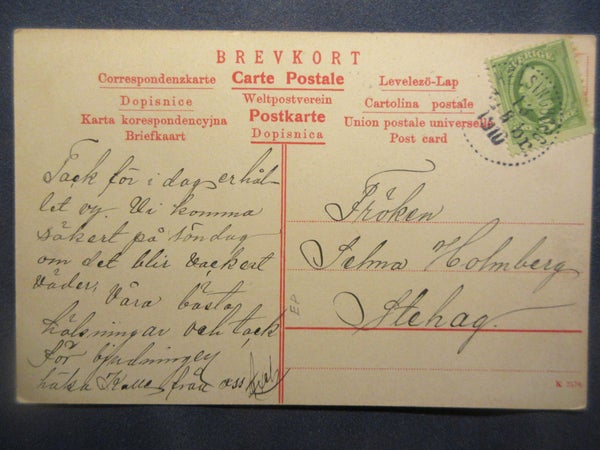 BREVKORT
Correspondenzkarte Carte Postale Levelező-Lap
Dopisnice Weltpostverein Cartolina postale
Karta korespondencyjna Postkarte Union postale universelle
Briefkaart Dopisnica Post card
SVERIGE
1910
Tack för i dag erhål-
let vy. Vi komma
säkert på söndag
om det blir vackert
väder, Våra bästa
hälsningar och tack
för bjudningen
hälsa Kalle från oss
Fröken
Selma Holmberg
Stehag.
EP